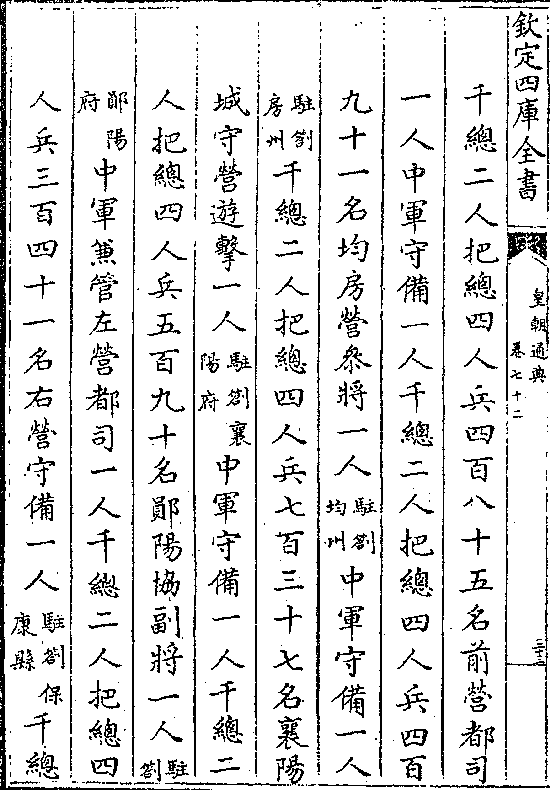 欽定四庫全書
皇朝通典
卷七十二
三十三
千總二人把總四人兵四百八十五名前營都司
一人中軍守備一人千總二人把總四人兵四百
九十一名均房營叅將一人駐劄均州中軍守備一人
駐劄房州千總二人把總四人兵七百三十七名襄陽
城守營遊擊一人駐劄襄陽府中軍守備一人千總二
人把總四人兵五百九十名鄖陽協副將一人駐劄
鄖陽府中軍兼管左營都司一人千總二人把總四
人兵三百四十一名右營守備一人駐劄保康縣千總